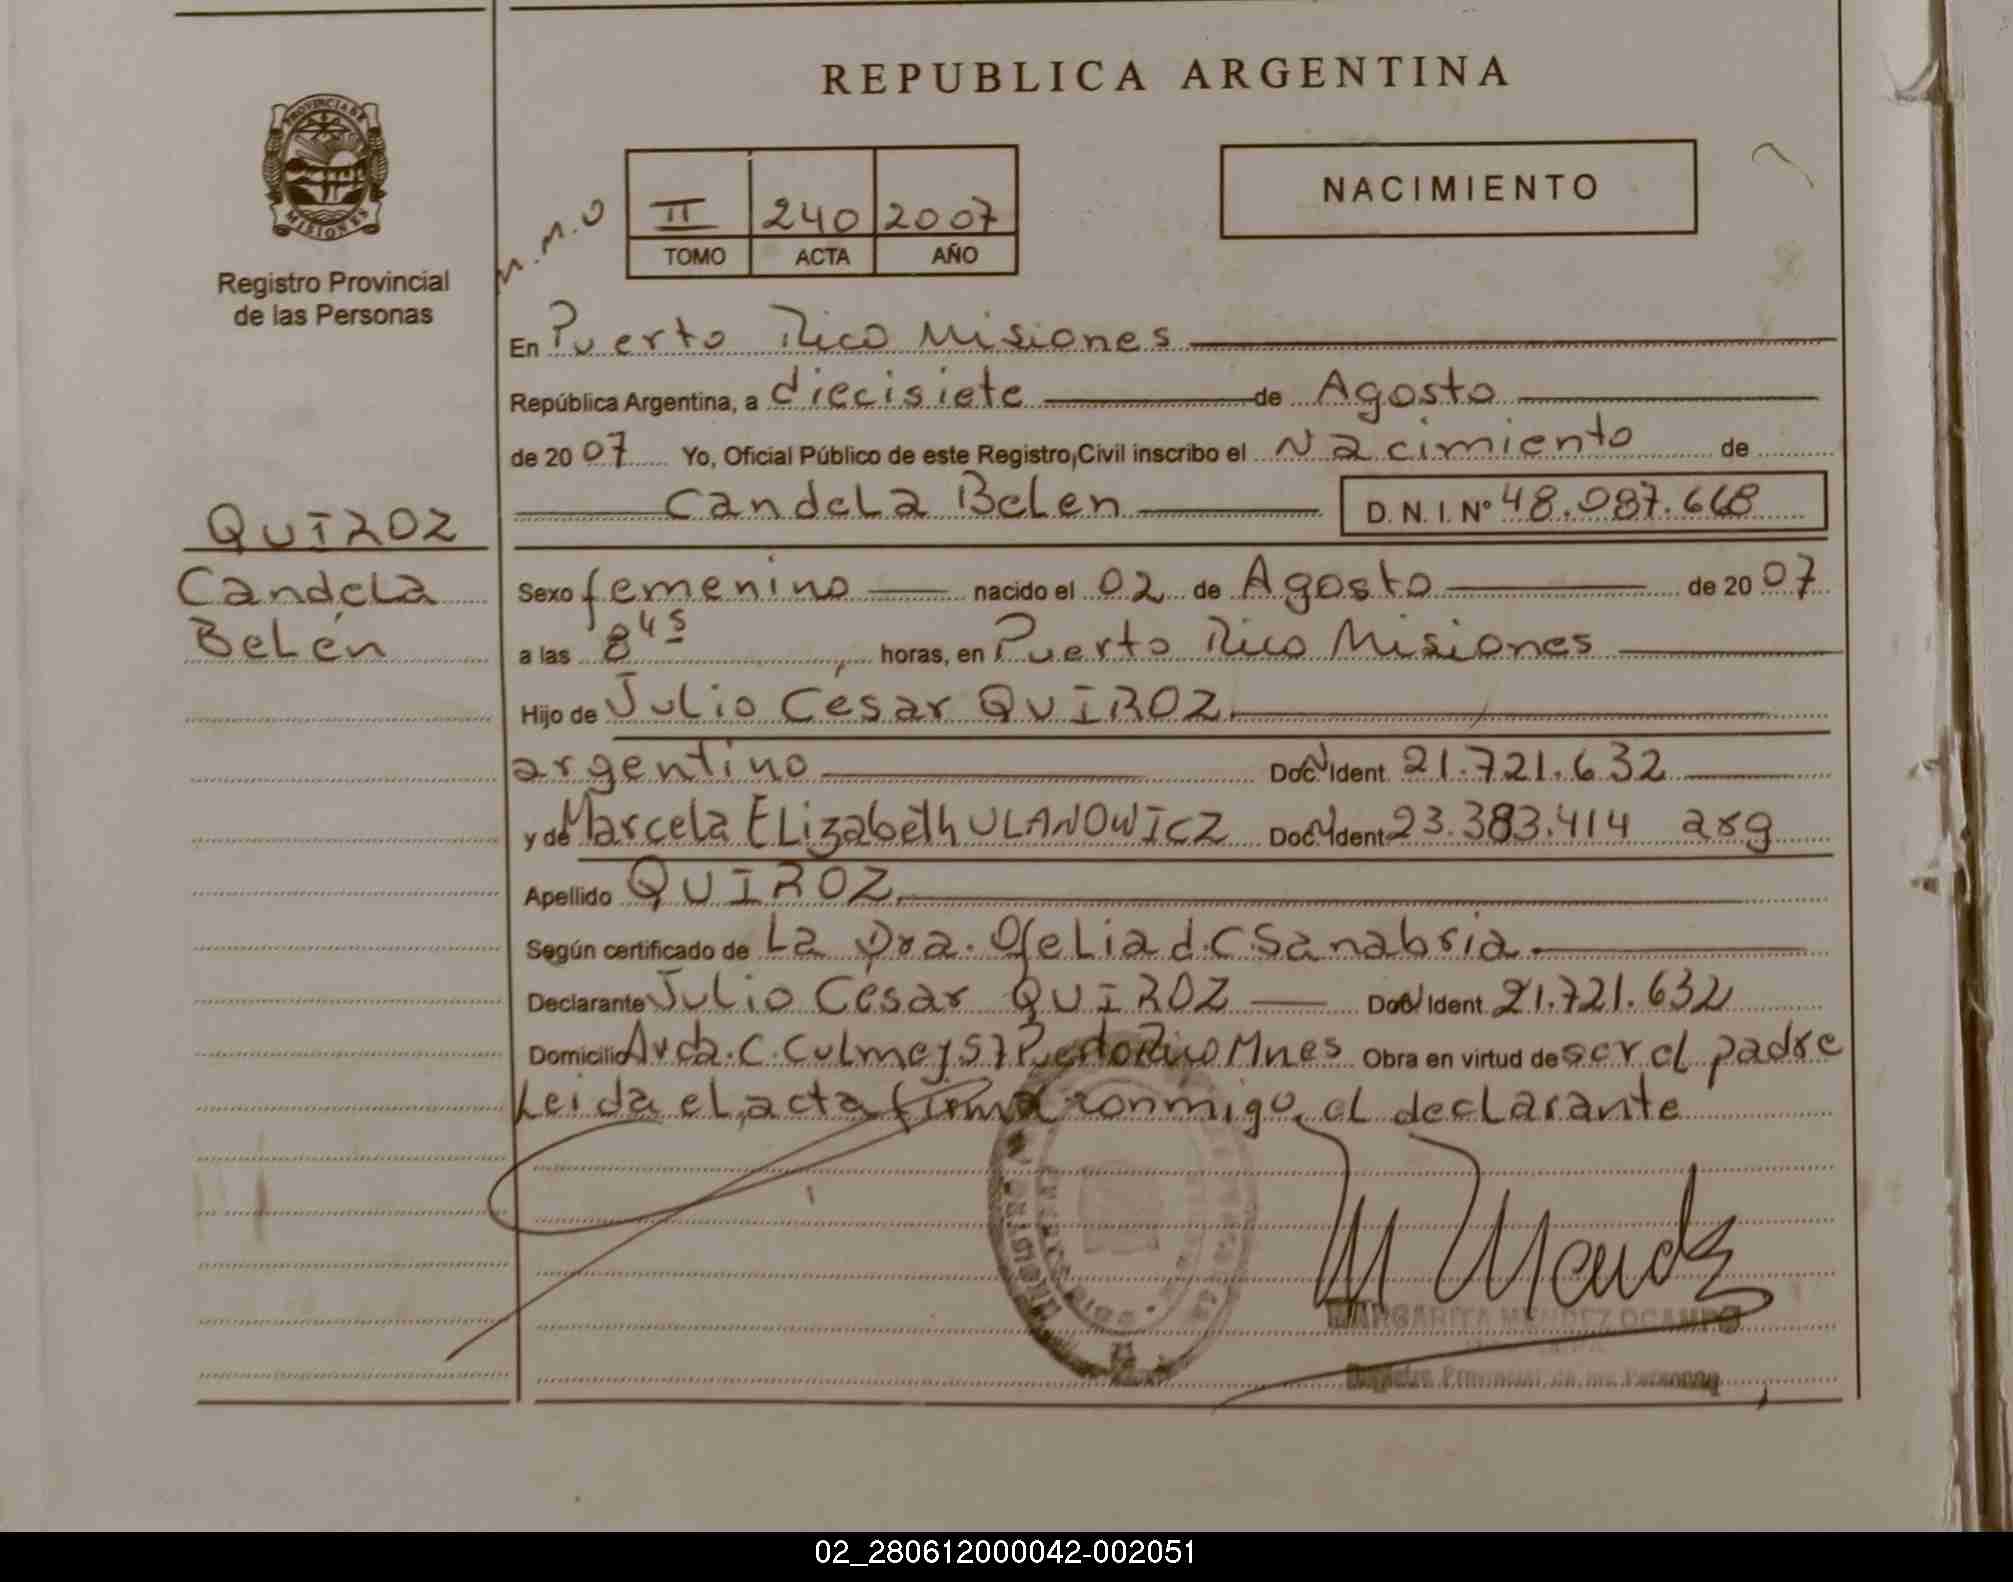 REPUBLICA ARGENTINA
PROVINCIA DE
MISIONES
Registro Provincial
de las Personas
M.M.O
II 240 2007
TOMO ACTA AÑO
NACIMIENTO
En Puerto Rico Misiones
República Argentina, a diecisiete de Agosto
de 2007 Yo, Oficial Público de este Registro Civil inscribo el Nacimiento de
Candela Belen D. N. I. Nº 48.087.668
QUIROZ
Candela
Belén
Sexo femenino nacido el 02 de Agosto de 2007
a las 8 45 horas, en Puerto Rico Misiones
Hijo de Julio César QUIROZ
argentino Doc N Ident. 21.721.632
y de Marcela Elizabeth ULANOWICZ Doc N Ident. 23.383.414 arg
Apellido QUIROZ
Según certificado de La Dra. Ofelia d.C Sanabria
Declarante Julio Cesar QUIROZ Doc N Ident. 21.721.632
Domicilio Avda. C. Culmey 57 Puerto Rico Mnes Obra en virtud de ser el padre
Leida el acta firma conmigo el declarante
M Mendez
MARGARITA MENDEZ OCAMPO
Registro Provincial de las Personas
02_280612000042-002051